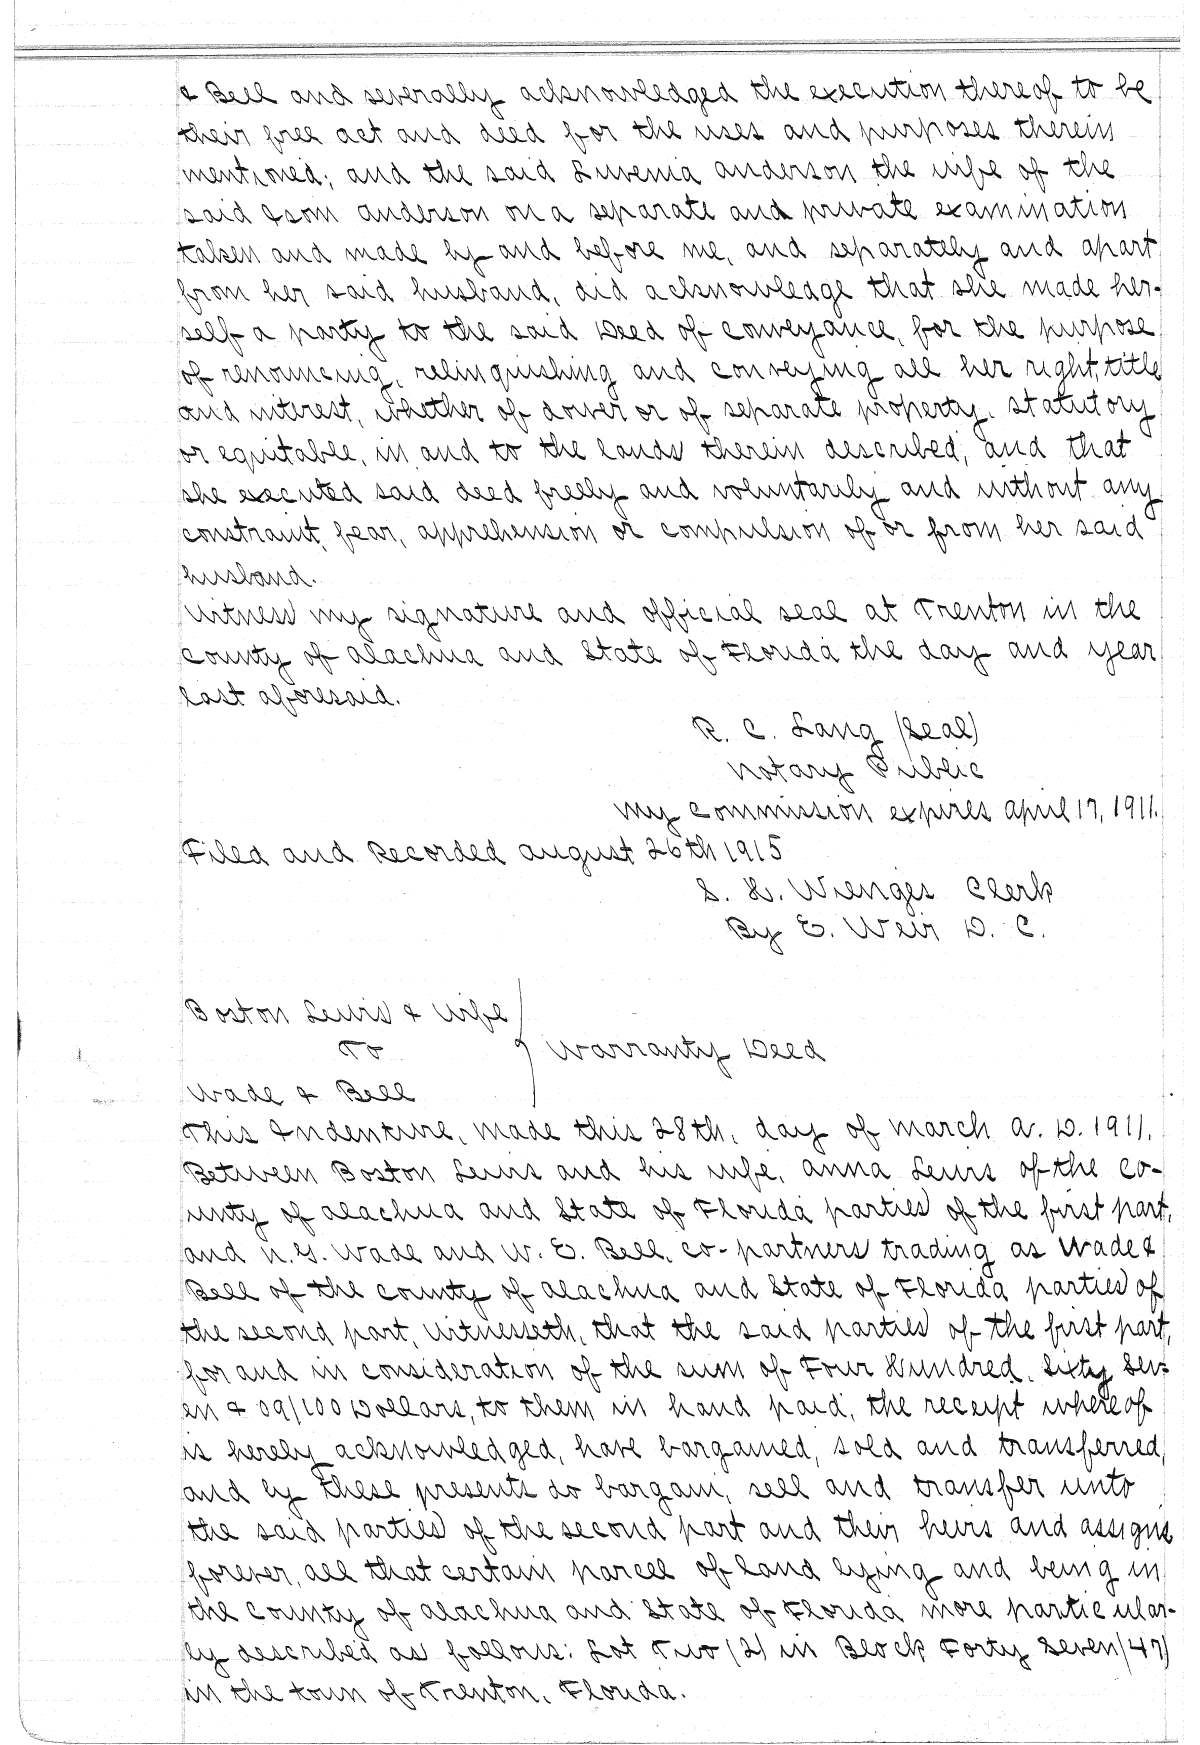 & Bell and severally acknowledged the execution thereof to be
their free act and deed for the uses and purposes therein
mentioned; and the said Luvenia Anderson the wife of the
said Isom Anderson on a separate and private examination
taken and made by and before me, and separately and apart
from her said husband, did acknowledge that she made her-
self a party to the said Deed of Conveyance, for the purpose
of renouncing, relinquishing and conveying all her right, title
and interest, whether of dower or of separate property, statutory
or equitable, in and to the lands therein described, and that
she executed said deed freely and voluntarily and without any
constraint, fear, apprehension or compulsion of or from her said
husband.
Witness my signature and official seal at Trenton in the
County of Alachua and State of Florida the day and year
last aforesaid.
R. C. Lang (Seal)
Notary Public
My Commission expires April 17, 1911.
Filed and Recorded August 26th 1915
S. H. Wienges Clerk
By E. Weir D. C.
Boston Lewis & Wife
To
Warranty Deed
Wade & Bell
This Indenture, Made this 28th, day of March A. D. 1911,
Between Boston Lewis and his wife, Anna Lewis of the Co-
unty of Alachua and State of Florida parties of the first part,
and N. G. Wade and W. E. Bell, co-partners trading as Wade &
Bell of the County of Alachua and State of Florida parties of
the second part, Witnesseth, that the said parties of the first part,
for and in consideration of the sum of Four Hundred, Sixty Sev-
en & 09/100 Dollars, to them in hand paid, the receipt whereof
is hereby acknowledged, have bargained, sold and transferred,
and by these presents do bargain, sell and transfer unto
the said parties of the second part and their heirs and assigns
forever, all that certain parcel of land lying and being in
the County of Alachua and State of Florida more particular-
ly described as follows: Lot Two (2) in Block Forty Seven (47)
in the town of Trenton, Florida.